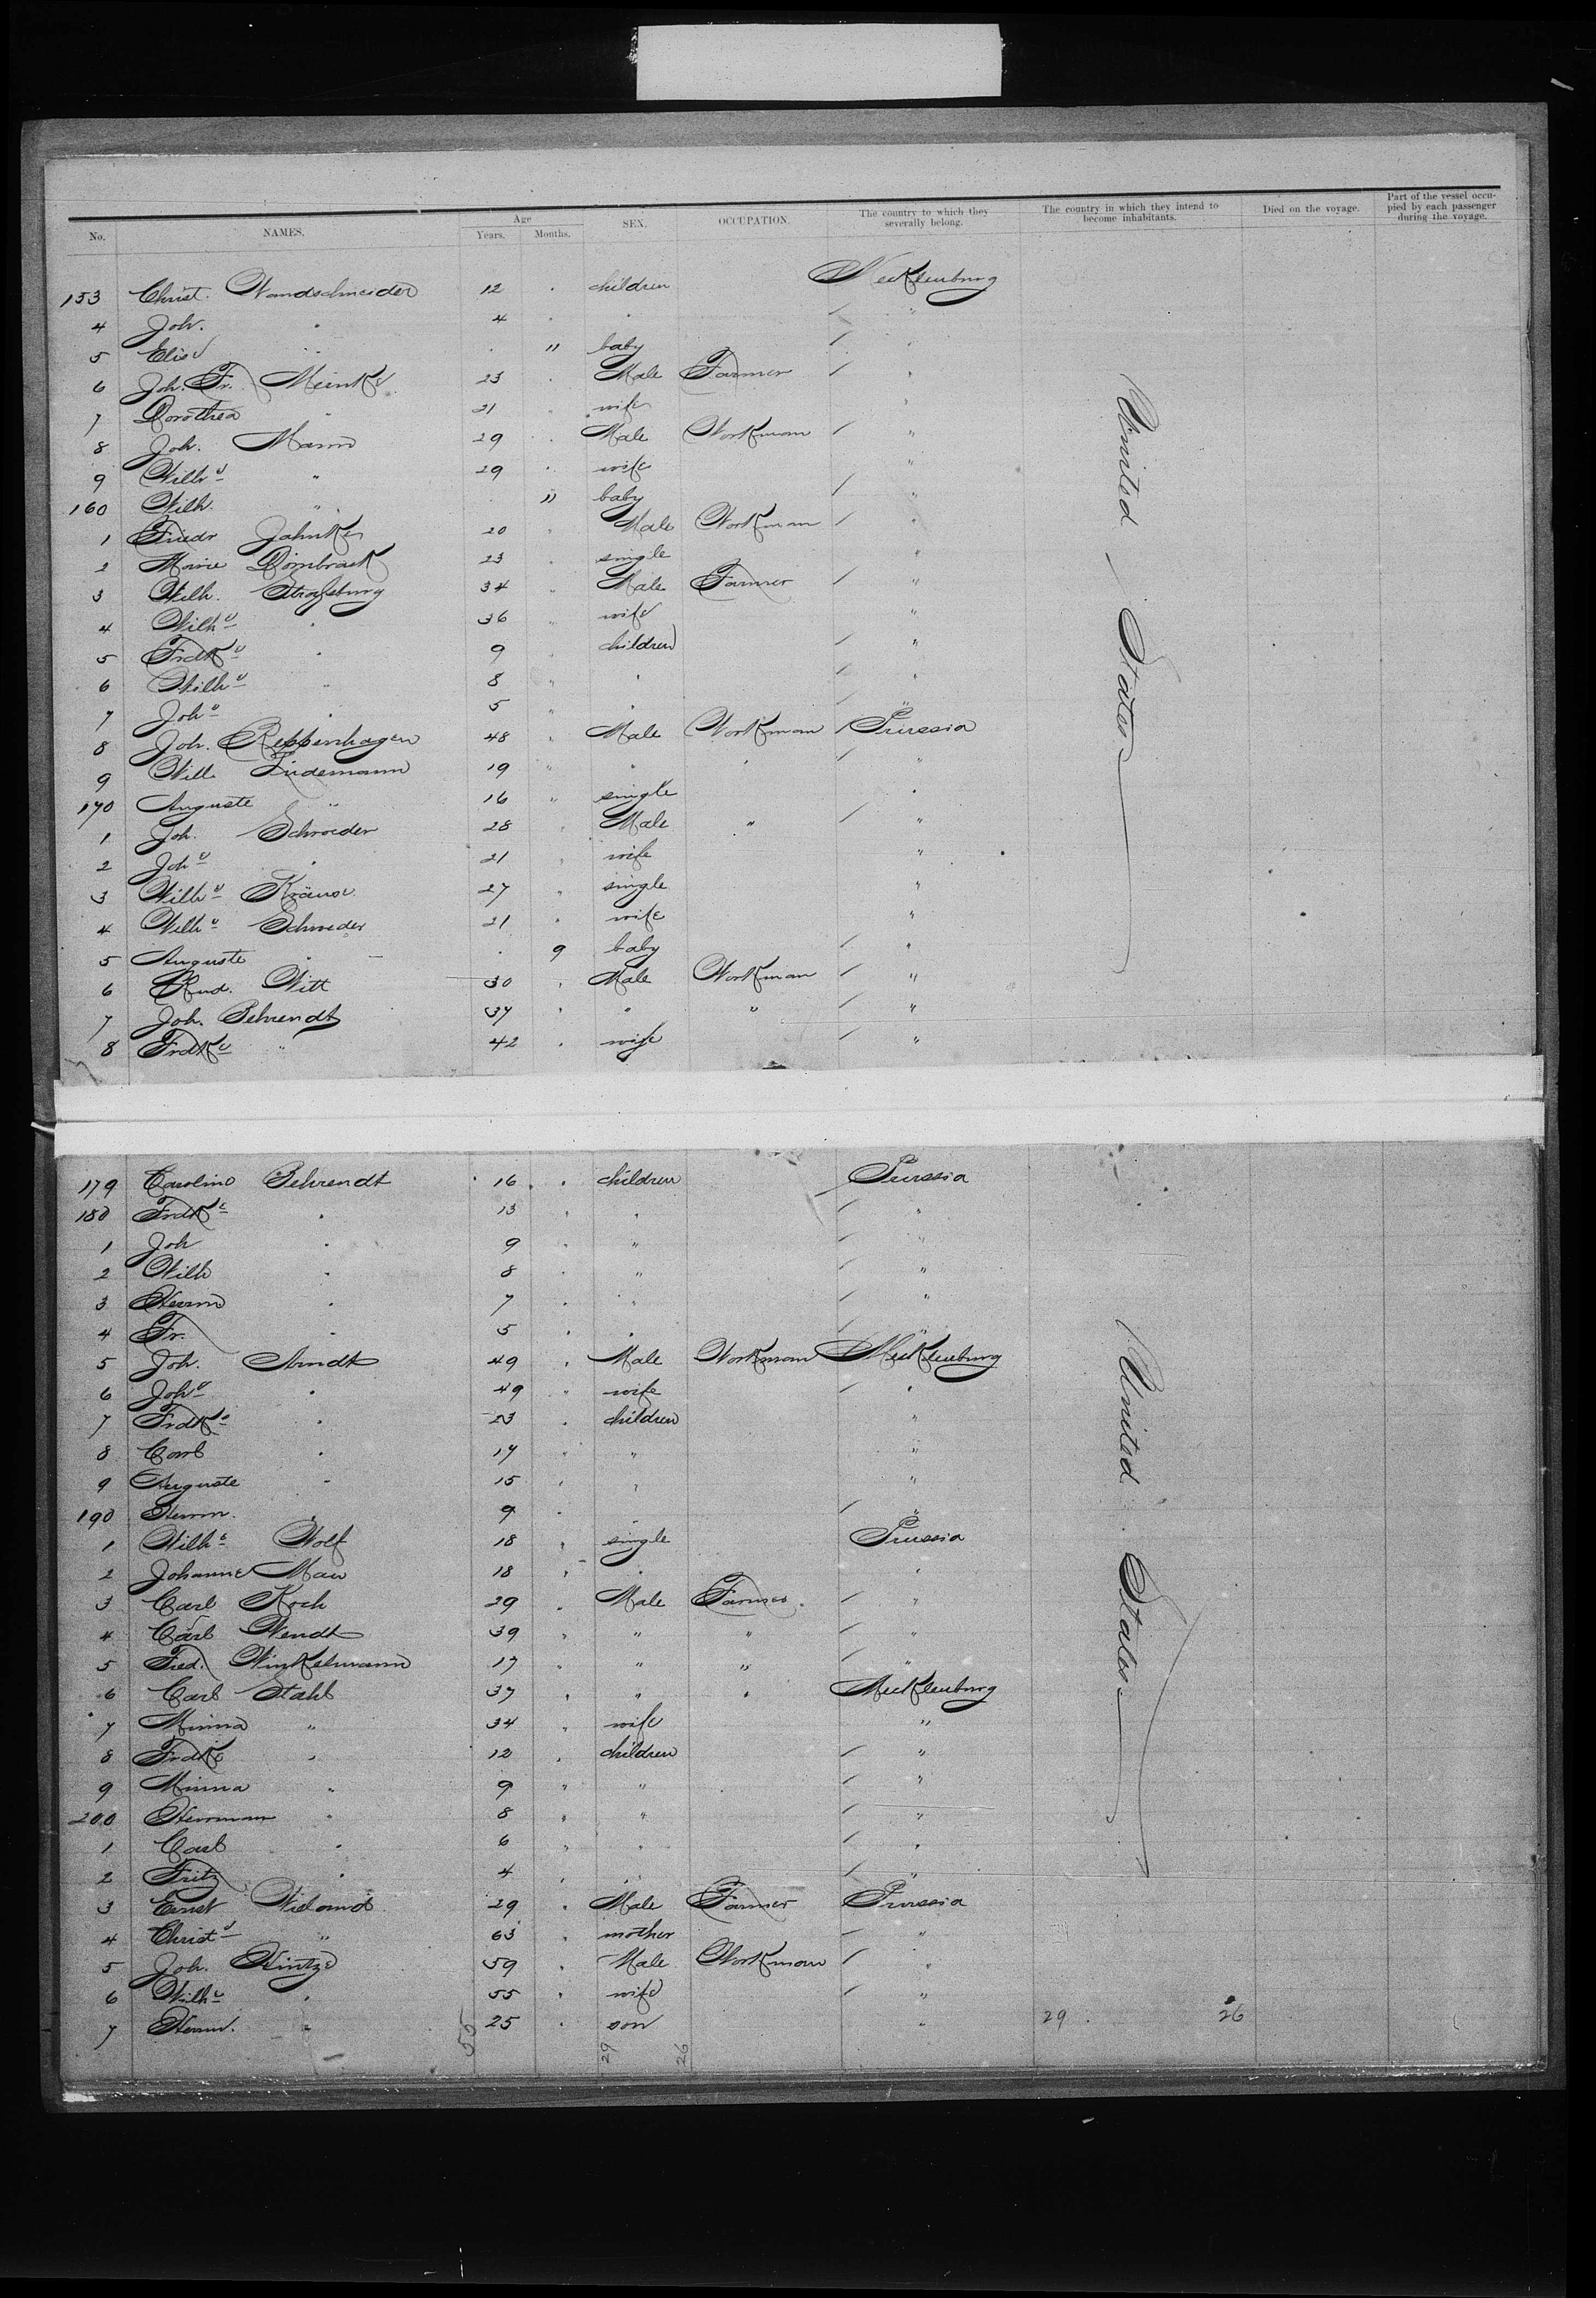 No. NAMES. Age Years. Months. SEX. OCCUPATION. The country to which they severally belong. The country in which they intend to become inhabitants. Died on the voyage. Part of the vessel occupied by each passenger during the voyage.
153 Christ. Wandschneider 12 " children Mecklenburg
4 Joh. " 4 " " "
5 Elise " " 11 baby "
6 Joh. Fr. Meinke 23 " Male Farmer "
7 Dorothea " 21 " wife "
8 Joh. Mann 29 " Male Workman "
9 Wilhe " 29 " wife "
160 Wilh. " " 11 baby "
1 Friedr Jahnke 20 " Male Workman "
2 Marie Dombrack 23 " single "
3 Wilh. Straßburg 34 " Male Farmer "
4 Wilhe " 36 " wife "
5 Frdke " 9 " children "
6 Wilhe " 8 " " "
7 Johe " 5 " " "
8 Joh. Reppenhagen 48 " Male Workman Prussia
9 Wilh. Lindemann 19 " " " "
170 Auguste " 16 " single "
1 Joh. Schroeder 28 " Male " "
2 Johe " 21 " wife "
3 Wilhe Krause 27 " single "
4 Wilhe Schroeder 21 " wife "
5 Auguste " " 9 baby "
6 Rud. Witt 30 " Male Workman "
7 Joh. Behrendt 37 " " " "
8 Frdke " 42 " wife "
United States
179 Caroline Behrendt 16 " children Prussia
180 Frdke " 13 " " "
1 Joh " 9 " " "
2 Wilh " 8 " " "
3 Herm " 7 " " "
4 Fr. " 5 " " "
5 Joh. Arndt 49 " Male Workman Mecklenburg
6 Johe " 49 " wife "
7 Frdke " 23 " children "
8 Carl " 17 " " "
9 Auguste " 15 " " "
190 Herm. " 9 " " "
1 Wilhe Wolf 18 " single Prussia
2 Johanne Mau 18 " " "
3 Carl Koch 29 " Male Farmer "
4 Carl Wendt 39 " " " "
5 Fred. Winkelmann 17 " " " "
6 Carl Stahl 37 " " " Mecklenburg
7 Minna " 34 " wife "
8 Frdke " 12 " children "
9 Minna " 9 " " "
200 Herrman " 8 " " "
1 Carl " 6 " " "
2 Fritz " 4 " " "
3 Ernst 29 " Male Farmer Prussia
4 Christe " 63 " mother "
5 Joh. Hintze 59 " Male Workman "
6 Wilhe " 55 " wife "
7 Herm. " 25 " son "
United States
29 26
55 29 26